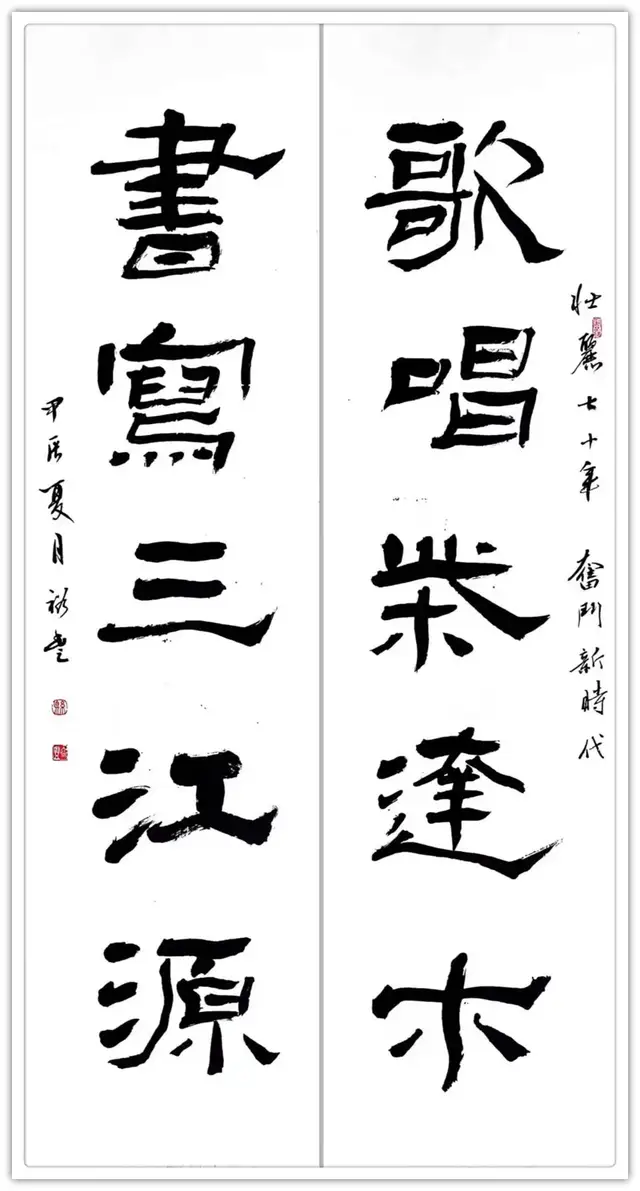 壯麗七十年 奮鬥新時代
歌唱柴達木
書寫三江源
甲辰夏月